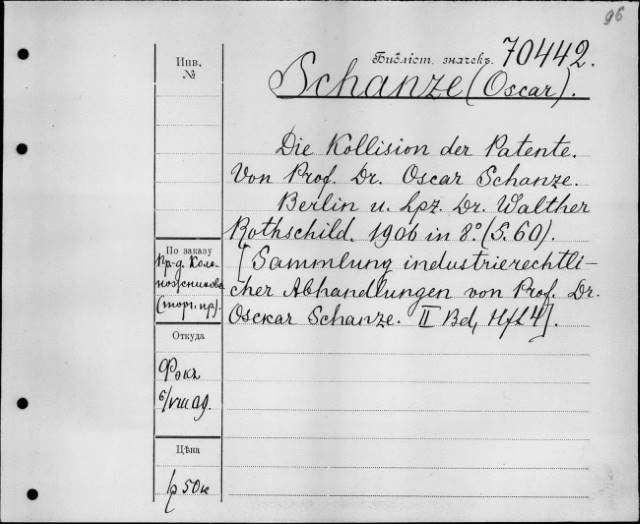 96
Инв.
№
Библіст. значекъ. 70442.
Schanze (Oscar).
Die Kollision der Patente.
Von Prof. Dr. Oscar Schanze.
Berlin u. Lpz. Dr. Walther
Rothschild. 1906 in 8.° (S. 60).
[Sammlung industrierechtli-
cher Abhandlungen von Prof. Dr.
Oscar Schanze. II Bd, Hft 4].
По заказу
Пр-д. Коло-
ножникова
(торг. пр).
Откуда
Фокъ
6/VIII 09.
Цѣна
1 р 50 к